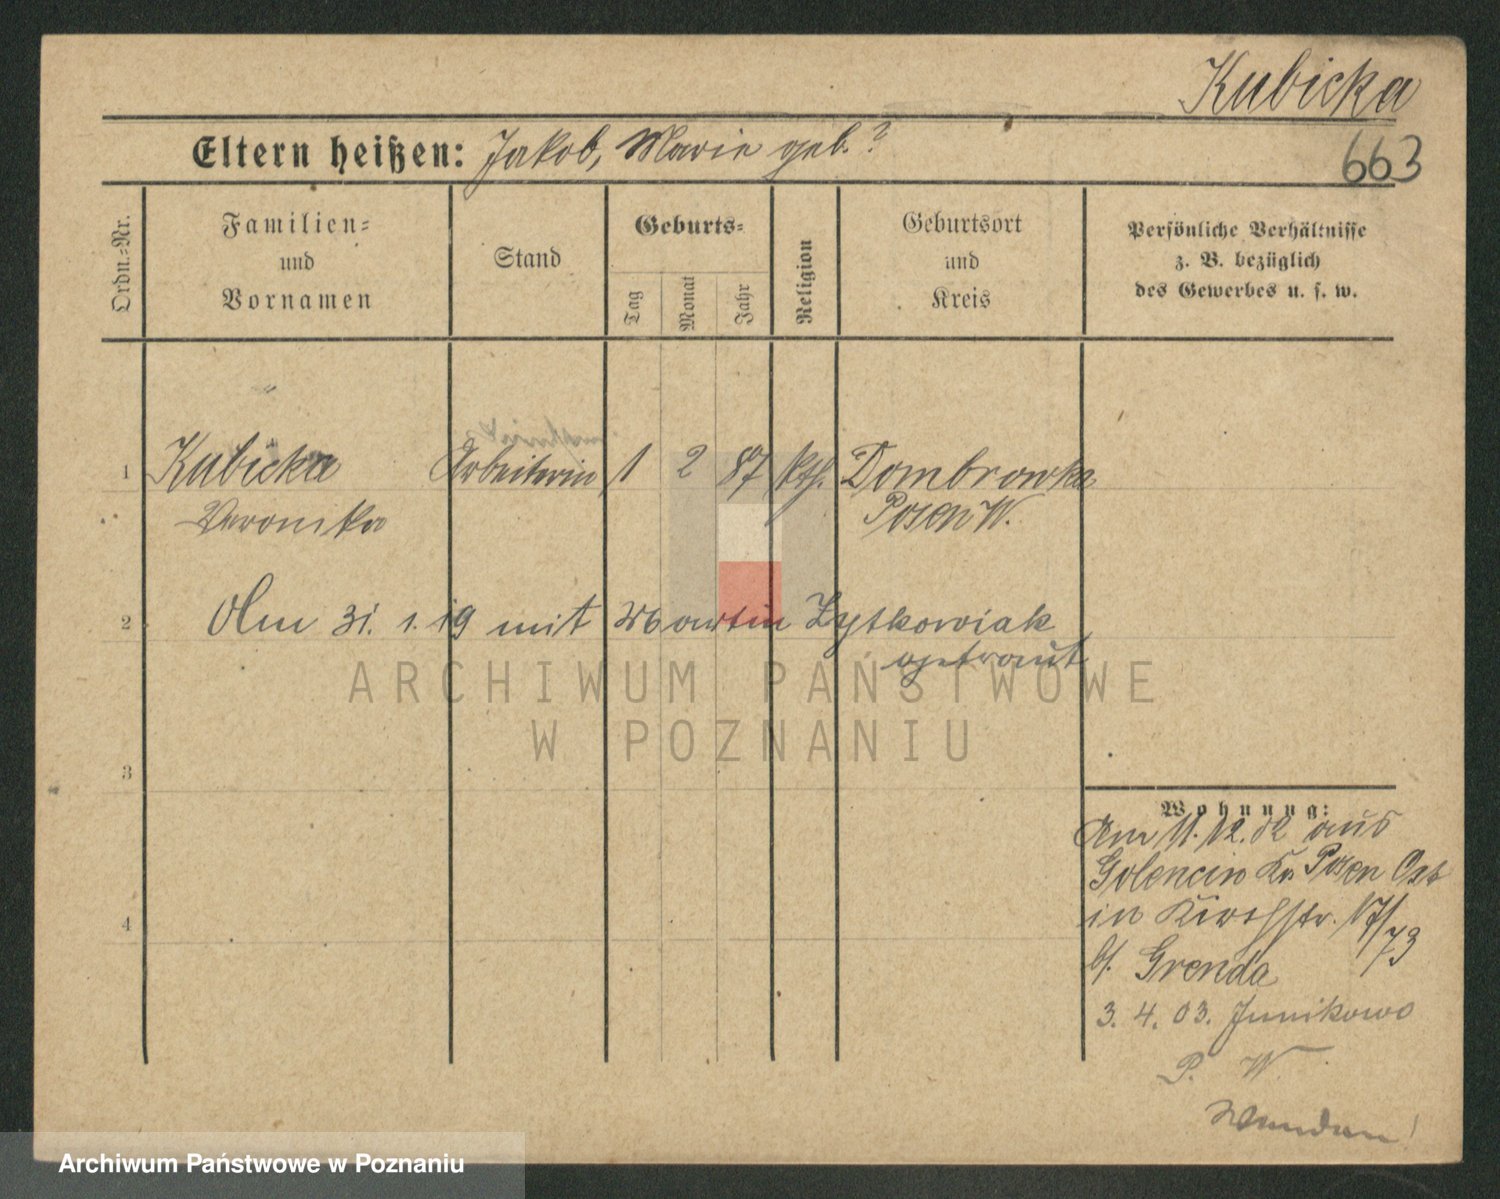 Kubicka
Eltern heißen: Jakob, Marie geb. ?
663
Ordn.-Nr.
Familien-
und
Vornamen
Stand
Geburts-
Tag
Monat
Jahr
Religion
Geburtsort
und
Kreis
Persönliche Verhältnisse
z. B. bezüglich
des Gewerbes u. s. w.
1 Kubicka Arbeiterin 1 2 87 kth. Dombrowka
Veronika Posen W.
2 Am 31. 1. 19 mit Martin Zytkowiak
getraut
ARCHIWUM PAŃSTWOWE
W POZNANIU
3
4
Wohnung:
Am 11. 12. 02 aus
Golencin Kr. Posen Ost
in Kirchstr. 17/73
bf. Grenda
3. 4. 03. Junikowo
P. W.
Archiwum Państwowe w Poznaniu